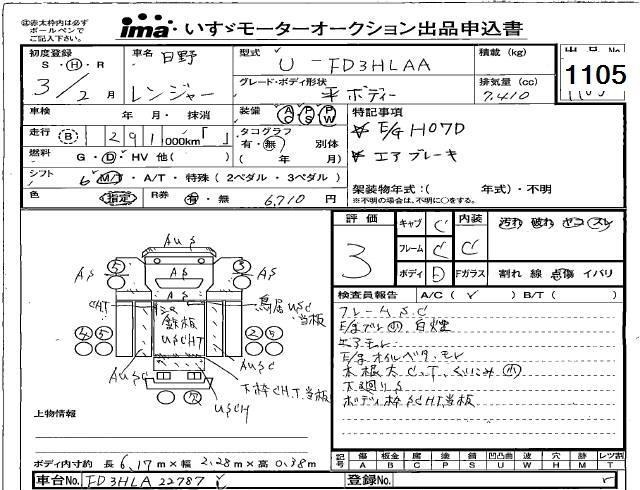 ㊟赤太枠内は必ず
ボールペンで
ご記入下さい。
ima いすゞモーターオークション出品申込書
初度登録
S・H・R
3/2月
車名 日野
レンジャー
型式
U-FD3HLAA
グレード・ボディ形状
平ボディー
積載 (kg)
排気量 (cc)
7,410
出品No
1105
車検 年 月・抹消
装備 AC PS PW
特記事項
E/G H07D
エアブレーキ
走行 B 291,000km
タコグラフ
有・無 別体
( 年 月)
燃料 G・D・HV 他( )
シフト 6 M/T・A/T・特殊(2ペダル・3ペダル)
色 指定 R券 有・無 6,710 円
架装物年式:( 年式)・不明
※不明の場合は、不明に○をする。
評価
3
キャブ C
フレーム C
ボディ D
内装 C
Fガラス
汚れ 破れ ヤコ スレ
割れ 線 点傷 イバリ
検査員報告 A/C( ) B/T( )
フレームSC
白煙
エアモレ
E/Gオイルベタ・モレ
下廻りS
ボディ枠SCHT当板
AUS
AS
AS
AS
AS
CHT
鳥居USC
当板
鉄板
USCHT
AUSC
AUSC
下枠CH.T.当板
USCH
上物情報
ボディ内寸約 長 6.17m×幅 2.28m×高 0.38m
記号
傷 板金 腐 塗 錆 凹凸曲 波 穴 時 レツ割
A B C P S U W H M T
車台No. FD3HLA 22787
登録No.